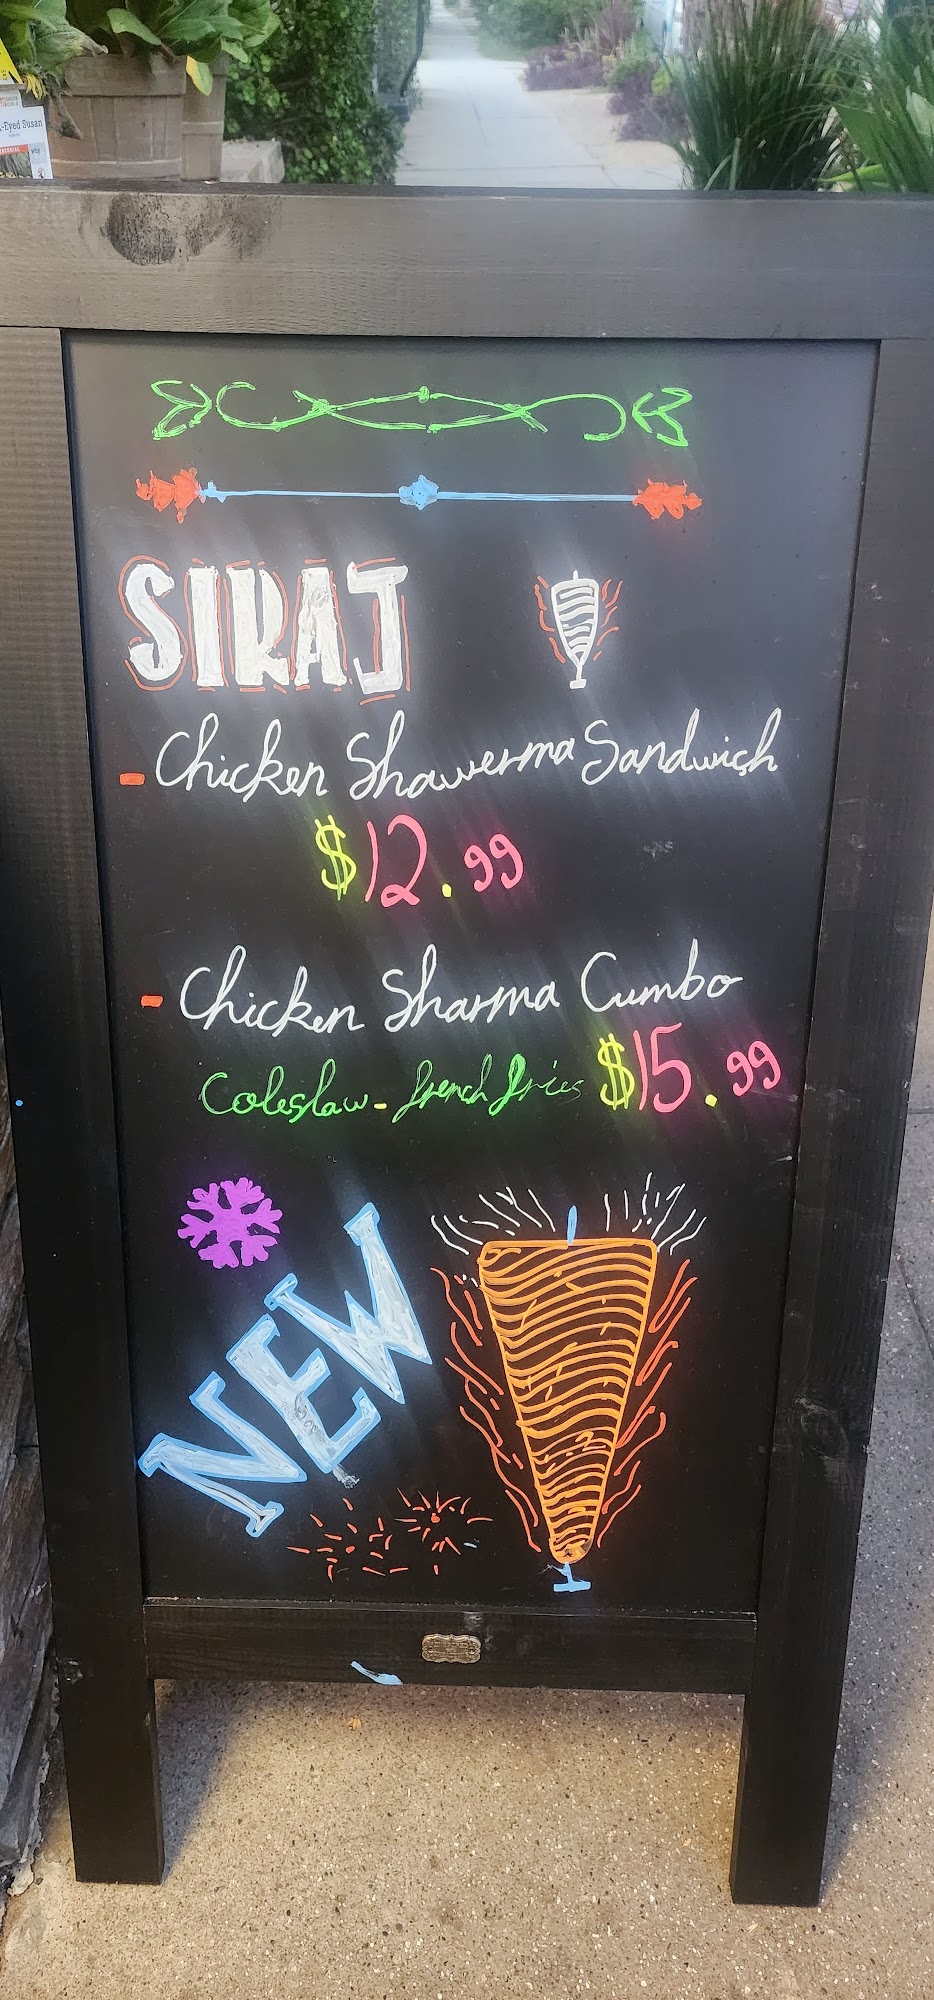 -Eyed Susan
SIRAJ
- Chicken Shawerma Sandwich
$12.99
- Chicken Sharma Cumbo
Coleslaw - french fries $15.99
NEW